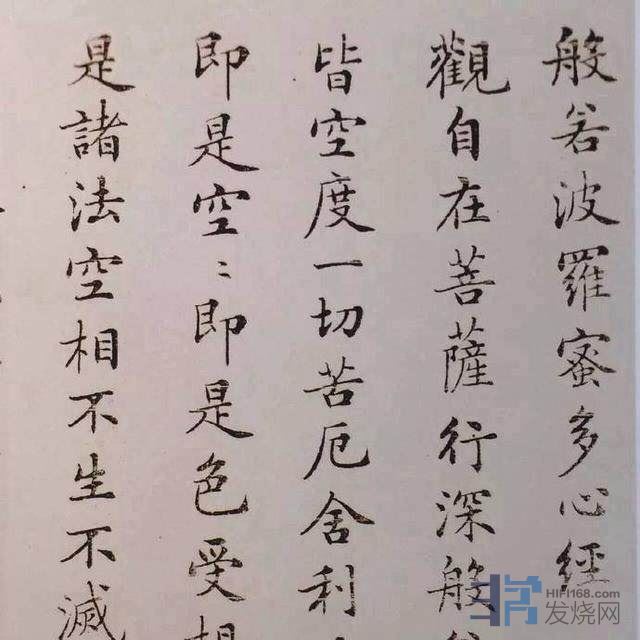 般若波羅蜜多心經
觀自在菩薩行深般
皆空度一切苦厄舍利
即是空〻即是色受想
是諸法空相不生不滅
HIFI168.com
发烧网